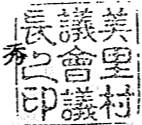 美里村
議會議
長之印
秀